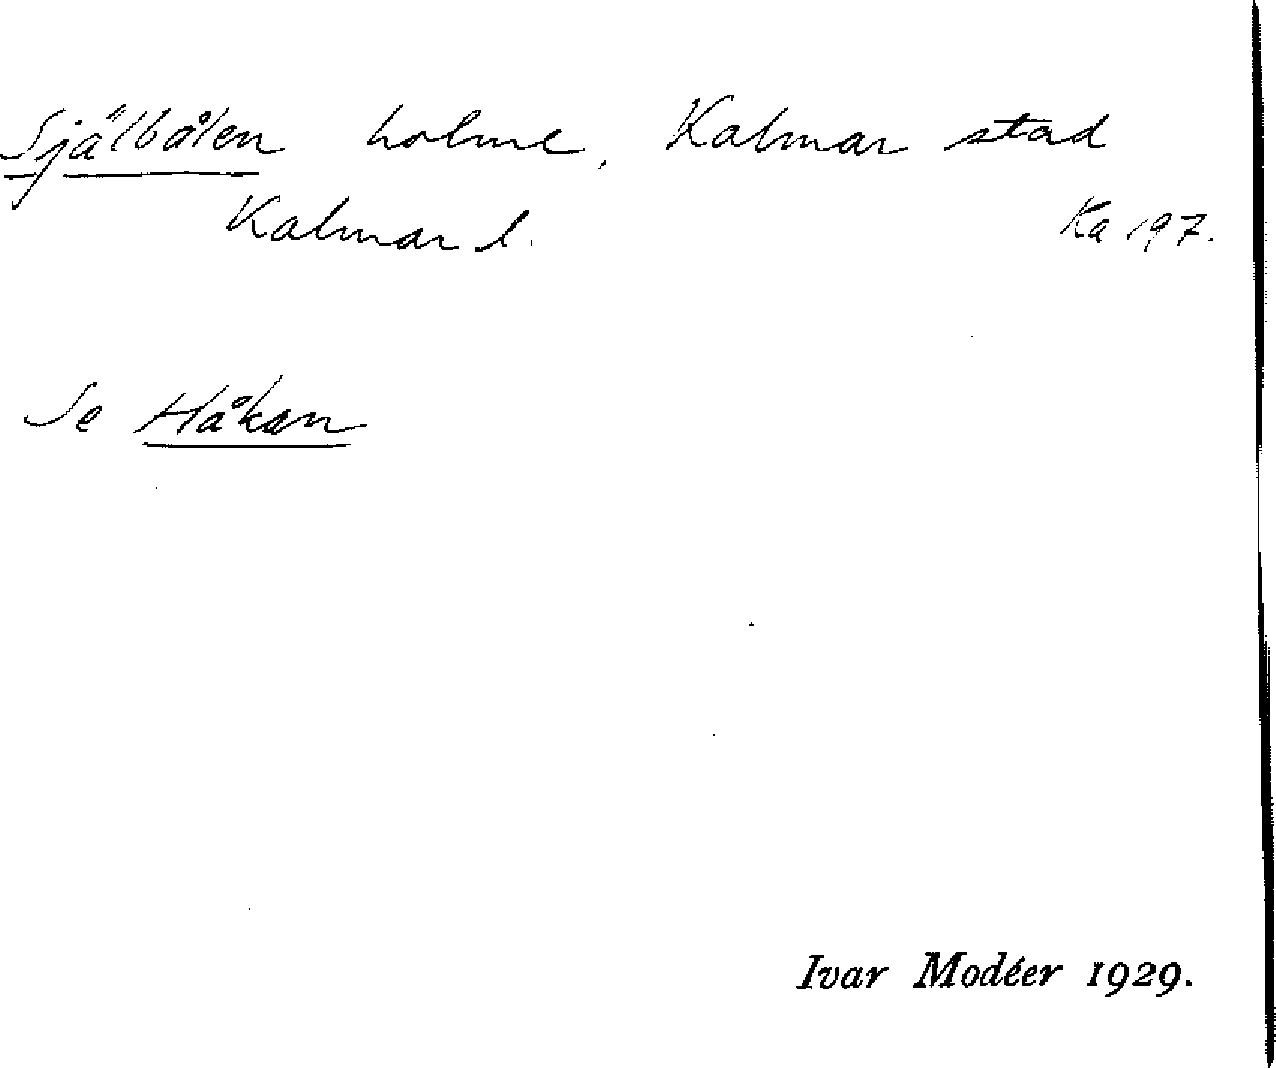 Själbålen holme, Kalmar stad
Kalmar l. Ka 197.
Se Håkan
Ivar Modéer 1929.